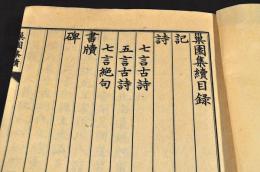 巢園集續目錄
記
詩
七言古詩
五言古詩
七言絕句
書牘
碑